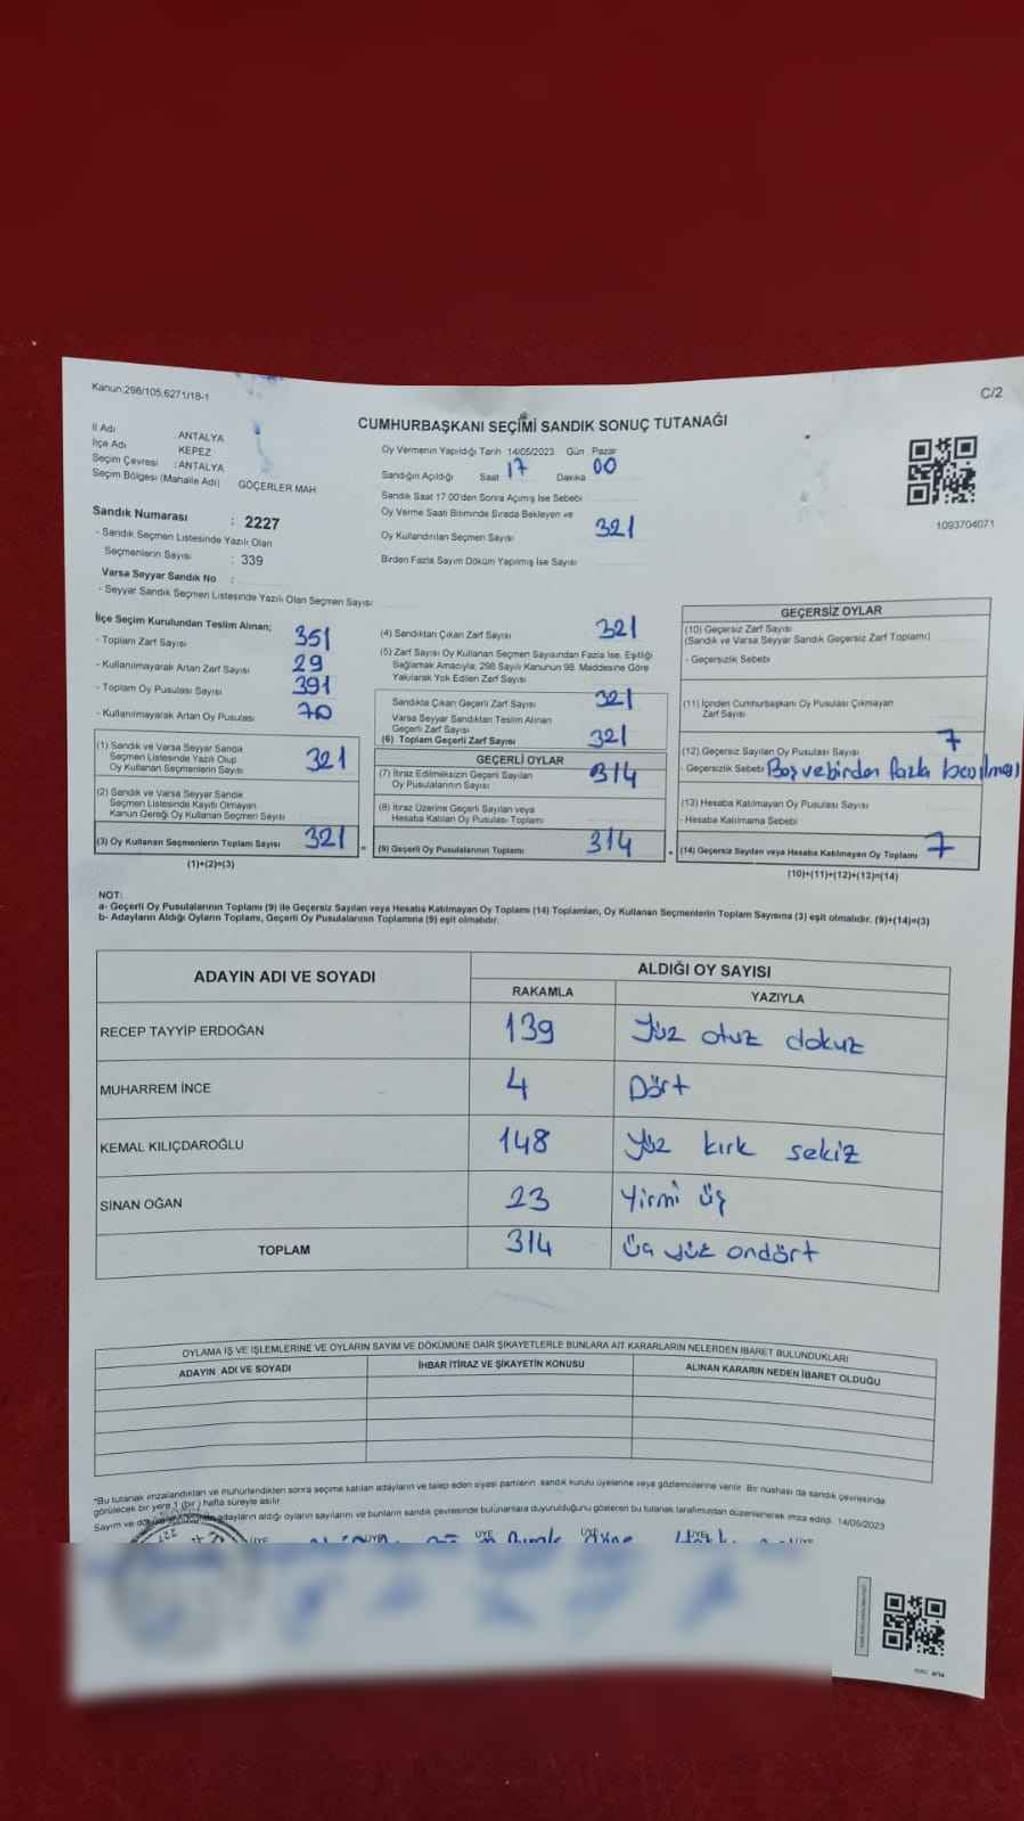 Kanun:298/105,6271/18-1
C/2
CUMHURBAŞKANI SEÇİMİ SANDIK SONUÇ TUTANAĞI
İl Adı : ANTALYA
İlçe Adı : KEPEZ
Seçim Çevresi : ANTALYA
Seçim Bölgesi (Mahalle Adı) GÖÇERLER MAH
Sandık Numarası : 2227
- Sandık Seçmen Listesinde Yazılı Olan
Seçmenlerin Sayısı : 339
Varsa Seyyar Sandık No :
- Seyyar Sandık Seçmen Listesinde Yazılı Olan Seçmen Sayısı:
Oy Vermenin Yapıldığı Tarih 14/05/2023 Gün Pazar
Sandığın Açıldığı Saat 17 Dakika 00
Sandık Saat 17.00'den Sonra Açımış İse Sebebi
Oy Verme Saati Bitiminde Sırada Bekleyen ve
Oy Kullandırılan Seçmen Sayısı 321
Birden Fazla Sayım Döküm Yapılmış İse Sayısı
1093704071
İlçe Seçim Kurulundan Teslim Alınan;
- Toplam Zarf Sayısı 351
- Kullanılmayarak Artan Zarf Sayısı 29
- Toplam Oy Pusulası Sayısı 391
- Kullanılmayarak Artan Oy Pusulası 70
(1) Sandık ve Varsa Seyyar Sandık
Seçmen Listesinde Yazılı Olup
Oy Kullanan Seçmenlerin Sayısı 321
(2) Sandık ve Varsa Seyyar Sandık
Seçmen Listesinde Kayıtlı Olmayan
Kanun Gereği Oy Kullanan Seçmen Sayısı
(3) Oy Kullanan Seçmenlerin Toplam Sayısı 321 =
(1)+(2)=(3)
(4) Sandıktan Çıkan Zarf Sayısı 321
(5) Zarf Sayısı Oy Kullanan Seçmen Sayısından Fazla İse, Eşitliği
Sağlamak Amacıyla, 298 Sayılı Kanunun 98. Maddesine Göre
Yakılarak Yok Edilen Zarf Sayısı
Sandıkta Çıkan Geçerli Zarf Sayısı 321
Varsa Seyyar Sandıktan Teslim Alınan
Geçerli Zarf Sayısı
(6) Toplam Geçerli Zarf Sayısı 321
GEÇERLİ OYLAR
(7) İtiraz Edilmeksizin Geçerli Sayılan
Oy Pusulalarının Sayısı 314
(8) İtiraz Üzerine Geçerli Sayılan veya
Hesaba Katılan Oy Pusulası Toplamı
(9) Geçerli Oy Pusulalarının Toplamı 314 +
GEÇERSİZ OYLAR
(10) Geçersiz Zarf Sayısı
(Sandık ve Varsa Seyyar Sandık Geçersiz Zarf Toplamı)
- Geçersizlik Sebebi
(11) İçinden Cumhurbaşkanı Oy Pusulası Çıkmayan
Zarf Sayısı
(12) Geçersiz Sayılan Oy Pusulası Sayısı 7
- Geçersizlik Sebebi Boş ve birden fazla basılması
(13) Hesaba Katılmayan Oy Pusulası Sayısı
- Hesaba Katılmama Sebebi
(14) Geçersiz Sayılan veya Hesaba Katılmayan Oy Toplamı 7
(10)+(11)+(12)+(13)=(14)
NOT:
a- Geçerli Oy Pusulalarının Toplamı (9) ile Geçersiz Sayılan veya Hesaba Katılmayan Oy Toplamı (14) Toplamları, Oy Kullanan Seçmenlerin Toplam Sayısına (3) eşit olmalıdır. (9)+(14)=(3)
b- Adayların Aldığı Oyların Toplamı, Geçerli Oy Pusulalarının Toplamına (9) eşit olmalıdır.
ADAYIN ADI VE SOYADI
ALDIĞI OY SAYISI
RAKAMLA YAZIYLA
RECEP TAYYİP ERDOĞAN 139 Yüz otuz dokuz
MUHARREM İNCE 4 Dört
KEMAL KILIÇDAROĞLU 148 Yüz kırk sekiz
SİNAN OĞAN 23 Yirmi üç
TOPLAM 314 Üç yüz ondört
OYLAMA İŞ VE İŞLEMLERİNE VE OYLARIN SAYIM VE DÖKÜMÜNE DAİR ŞİKAYETLERLE BUNLARA AİT KARARLARIN NELERDEN İBARET BULUNDUKLARI
ADAYIN ADI VE SOYADI
İHBAR İTİRAZ VE ŞİKAYETİN KONUSU
ALINAN KARARIN NEDEN İBARET OLDUĞU
*Bu tutanak imzalandıktan ve mühürlendikten sonra seçime katılan adayların ve talep eden siyasi partilerin sandık kurulu üyelerine veya gözlemcilerine verilir. Bir nüshası da sandık çevresinde
görülecek bir yere 1 (bir) hafta süreyle asılır.
Sayım ve adayların aldığı oyların sayılarını ve bunların sandık çevresinde bulunanlara duyurulduğunu gösteren bu tutanak tarafımızdan düzenlenerek imza edildi. 14/05/2023
ÜYE ÜYE ÜYE ÜYE ÜYE ÜYE